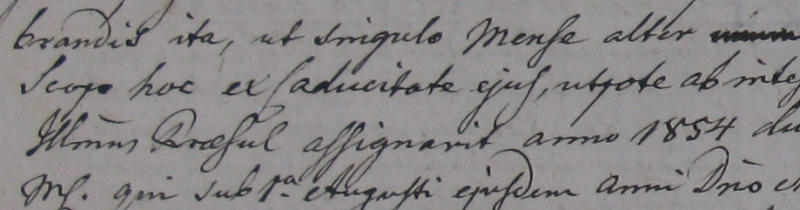 brandis ita, ut singulo Mense alter
Scopo hoc ex Caducitate ejus, utpote ab integ
Illmus Præsul assignavit anno 1854 du
Ms. qui sub 1a Augusti ejusdem anni Dno